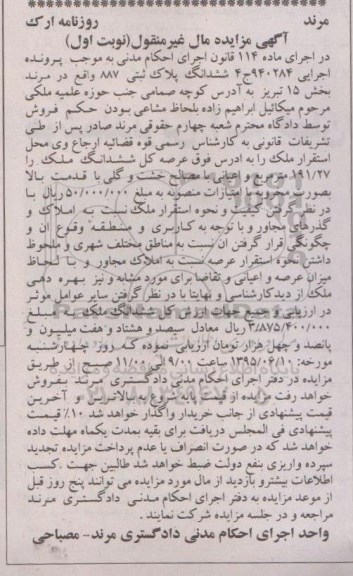 مرند روزنامه ارک
آگهی مزایده مال غیرمنقول(نوبت اول)
در اجرای ماده ۱۱۴ قانون اجرای احکام مدنی به موجب پرونده
اجرایی ۹۴۰۲۸۴ج۴ ششدانگ پلاک ثبتی ۸۸۷ واقع در مرند
بخش ۱۵ تبریز به آدرس کوچه صمامی جنب حوزه علمیه ملکی
مرحوم میکائیل ابراهیم زاده بلحاظ مشاعی بودن حکم فروش
توسط دادگاه محترم شعبه چهارم حقوقی مرند صادر پس از طی
تشریفات قانونی به کارشناس رسمی قوه قضائیه ارجاع وی محل
استقرار ملک را به ادرس فوق عرصه کل ششدانگ ملک را
۱۹۱/۲۷ مترمربع و اعیانی با مصالح خشت و گلی با قدمت بالا
بصورت مخروبه با امتیازات منصوبه به مبلغ ۵۰/۰۰۰/۰۰۰ ریال با
در نظر گرفتن کیفیت و نحوه استقرار ملک نسبت به املاک و
گذرهای مجاور و با توجه به کاربری و منطقه وقوع آن و
چگونگی قرار گرفتن آن نسبت به مناطق مختلف شهری و ملحوظ
داشتن نحوه استقرار عرصه نسبت به املاک مجاور و با لحاظ
میزان عرصه و اعیانی و تقاضا برای مورد مشابه و نیز بهره دهی
ملک از دید کارشناسی و نهایتا با در نظر گرفتن سایر عوامل موثر
در ارزیابی و جمیع جهات ارزش کل ششدانگ ملک به مبلغ
۳/۸۷۵/۴۰۰/۰۰۰ ریال معادل سیصد و هشتاد و هفت میلیون و
پانصد و چهل هزار تومان ارزیابی نموده که روز چهارشنبه
مورخه: ۱۳۹۵/۰۶/۱۰ ساعت ۹/۰۰ الی ۱۱/۰۰ صبح از طریق
مزایده در دفتر اجرای احکام مدنی دادگستری مرند بفروش
خواهد رفت مزایده از قیمت پایه شروع به بالاترین و آخرین
قیمت پیشنهادی از جانب خریدار واگذار خواهد شد ۱۰٪ قیمت
پیشنهادی فی المجلس دریافت برای بقیه بمدت یکماه مهلت داده
خواهد شد که در صورت انصراف یا عدم پرداخت مزایده تجدید
سپرده واریزی بنفع دولت ضبط خواهد شد طالبین جهت کسب
اطلاعات بیشتر و بازدید از مال مورد مزایده می توانند پنج روز قبل
از موعد مزایده به دفتر اجرای احکام مدنی دادگستری مرند
مراجعه و در جلسه مزایده شرکت نمایند .
واحد اجرای احکام مدنی دادگستری مرند- مصباحی